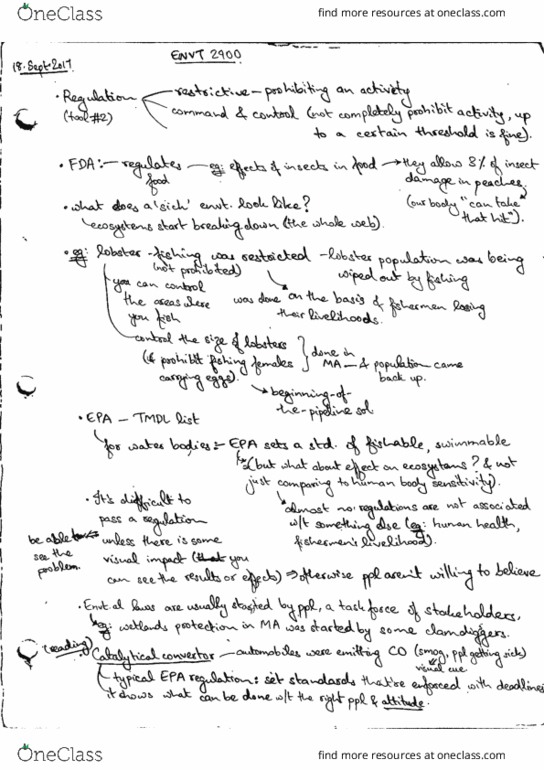 OneClass
find more resources at oneclass.com
ENVT 2900
18. Sept. 2017
• Regulation — restrictive – prohibiting an activity
(tool #2) command & control (not completely prohibit activity, up
to a certain threshold is fine).
• FDA:– regulates – eg: effects of insects in food → they allow 8% of insect
food damage in peaches.
(our body "can take
that hit").
• what does a 'sick' envt. look like?
ecosystems start breaking down (the whole web).
• eg: lobster-fishing was restricted – lobster population was being
(not prohibited) wiped out by fishing
you can control
the areas where was done on the basis of fishermen losing
you fish their livelihoods.
control the size of lobsters
(& prohibit fishing females } done in
carrying eggs). MA – & population came
back up.
beginning-of-
the-pipeline sol
• EPA – TMDL list
for water bodies:– EPA sets a std. of fishable, swimmable
(but what about effect on ecosystems? & not
just comparing to human body sensitivity).
• It's difficult to almost no regulations are not associated
pass a regulation w/t something else (eg: human health,
unless there is some fishermen's livelihood).
be able to
see the
problem.
visual impact (that you
can see the results or effects) ⇒ otherwise ppl aren't willing to believe
• Envt.al laws are usually started by ppl, a task force of stakeholders,
eg: wetlands protection in MA was started by some clamdiggers.
(reading)
• Catalytical convertor – automobiles were emitting CO (smog, ppl getting sick)
visual cue
typical EPA regulation: set standards that're enforced with deadlines
it shows what can be done w/t the right ppl & attitude.
OneClass
find more resources at oneclass.com